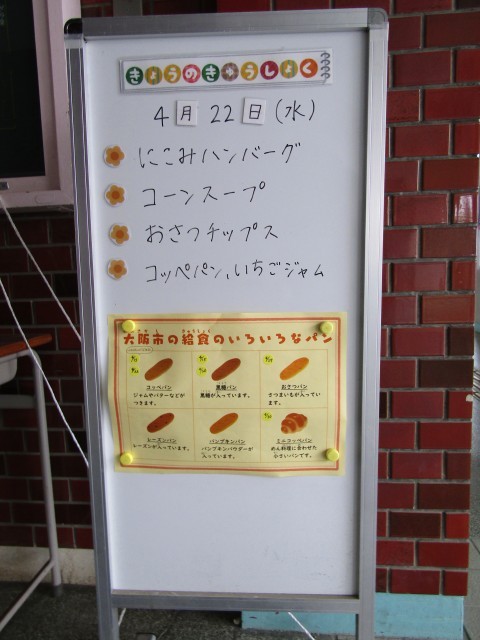 きょうのきゅうしょく
4月22日(水)
にこみハンバーグ
コーンスープ
おさつチップス
コッペパン,いちごジャム
大阪市の給食のいろいろなパン
コッペパン
ジャムやバターなどが
つきます。
黒糖パン
黒糖が入っています。
おさつパン
さつまいもが入ってい
ます。
レーズンパン
レーズンが入っています。
パンプキンパン
パンプキンパウダーが
入っています。
ミニコッペパン
めん料理に合わせた
小さいパンです。